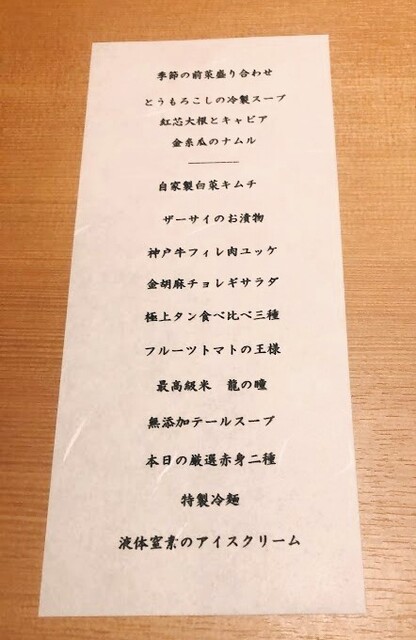 季節の前菜盛り合わせ
とうもろこしの冷製スープ
紅芯大根とキャビア
金糸瓜のナムル
自家製白菜キムチ
ザーサイのお漬物
神戸牛フィレ肉ユッケ
金胡麻チョレギサラダ
極上タン食べ比べ三種
フルーツトマトの王様
最高級米　龍の瞳
無添加テールスープ
本日の厳選赤身二種
特製冷麺
液体窒素のアイスクリーム